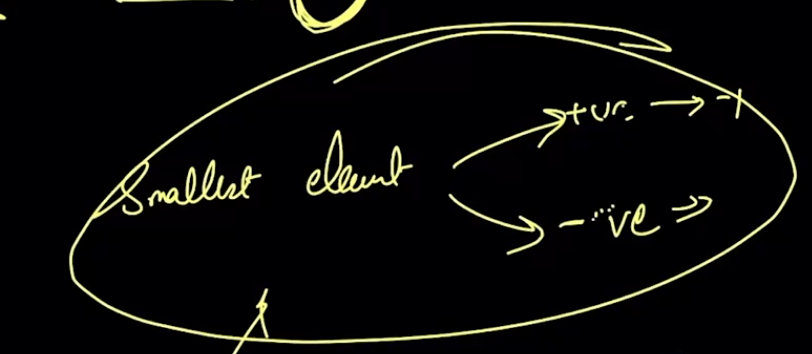 Smallest element
+ve. → -1
- ve ⇒